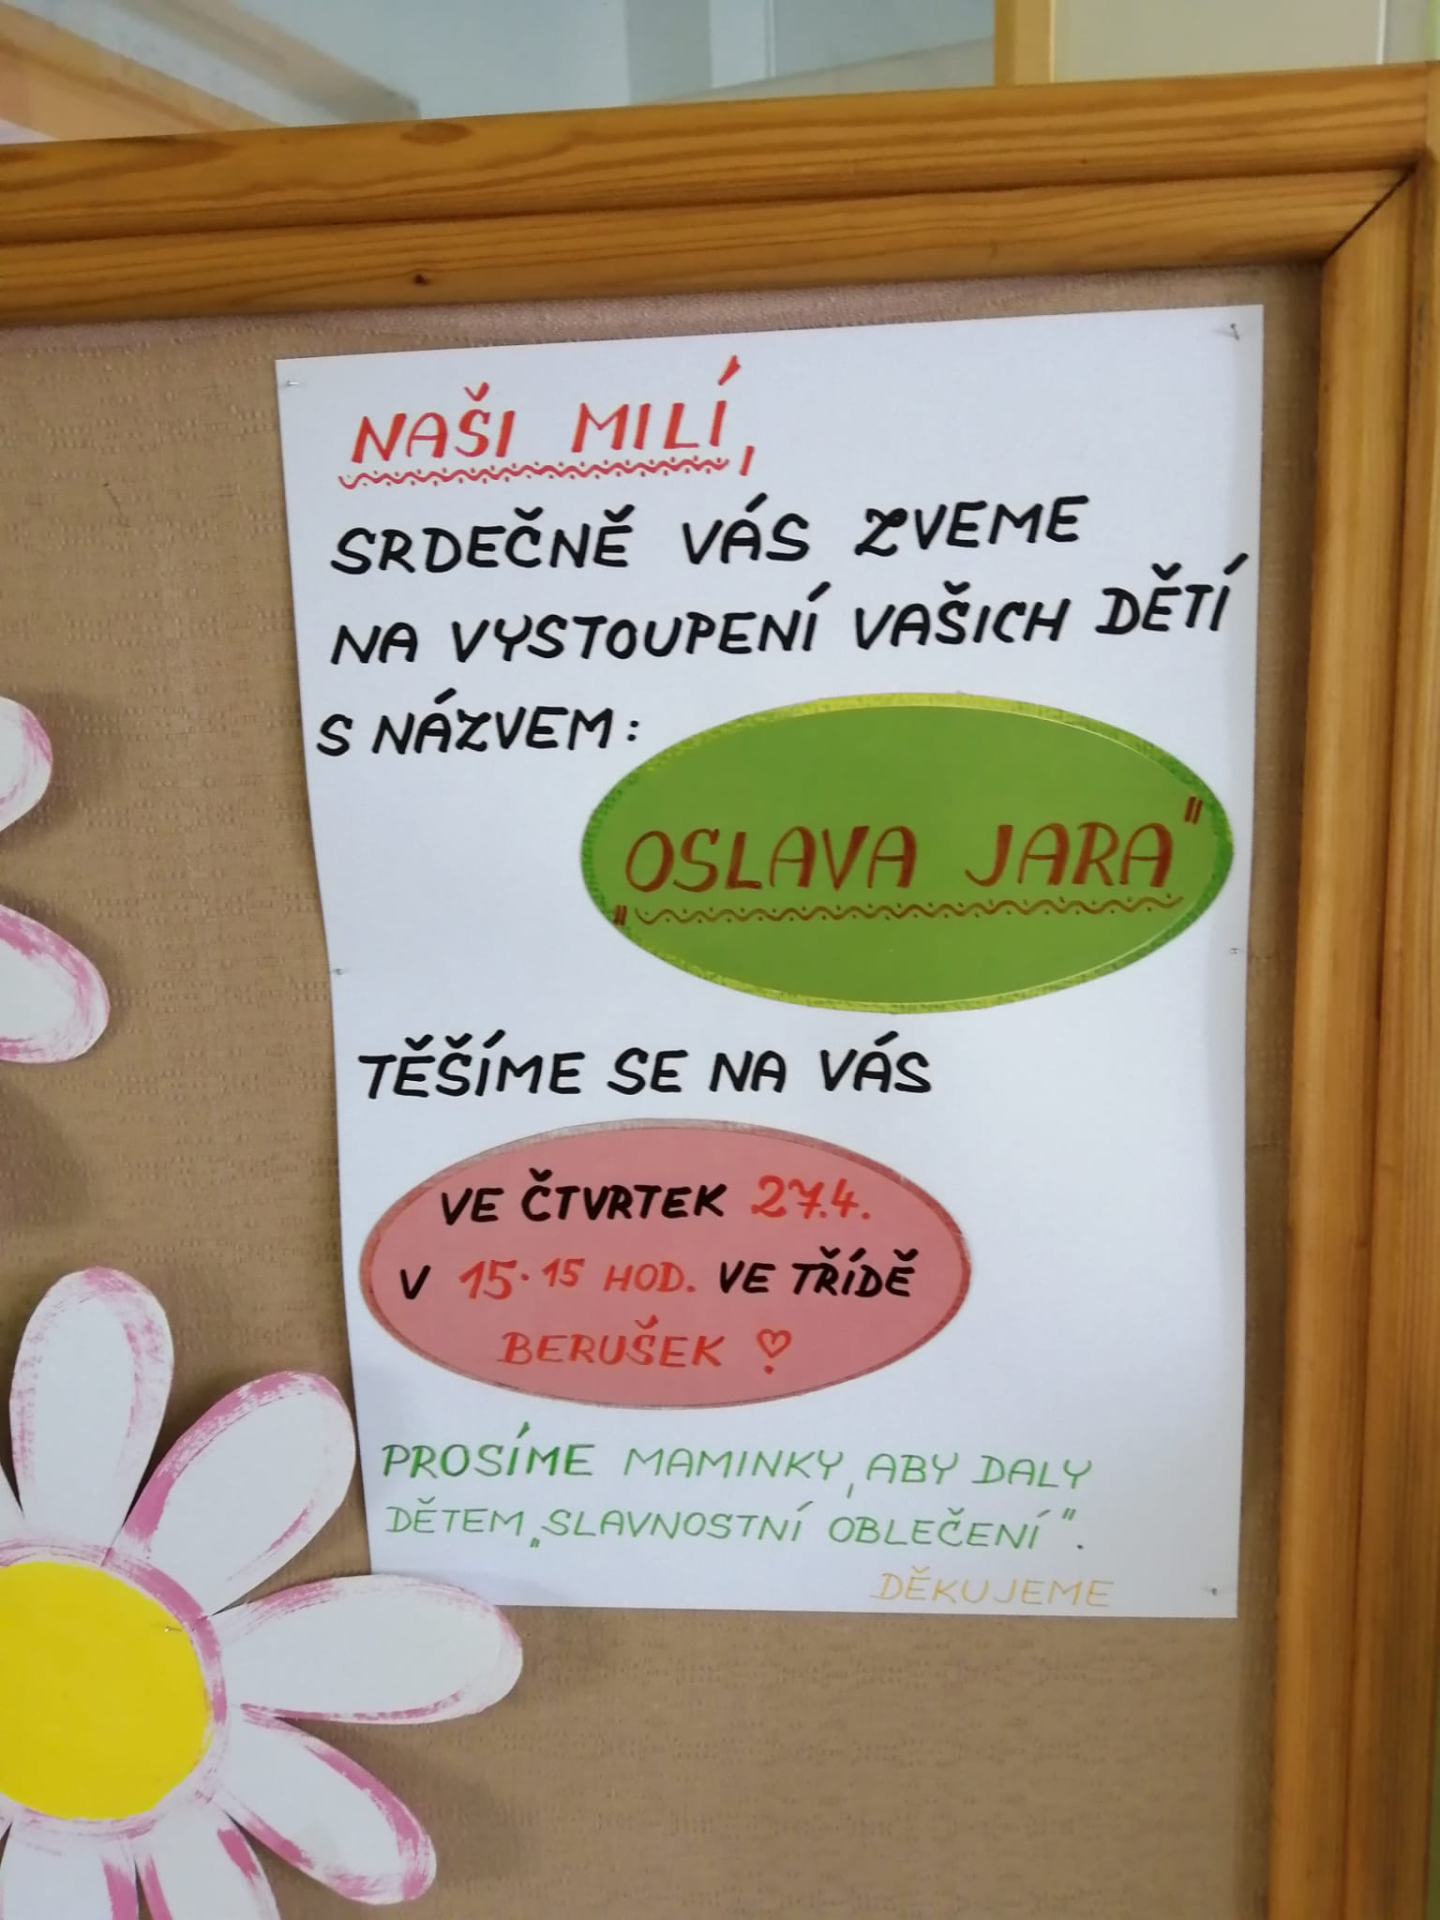 NAŠI MILÍ,
SRDEČNĚ VÁS ZVEME
NA VYSTOUPENÍ VAŠICH DĚTÍ
S NÁZVEM:
„OSLAVA JARA"
TĚŠÍME SE NA VÁS
VE ČTVRTEK 27.4.
V 15.15 HOD. VE TŘÍDĚ
BERUŠEK
PROSÍME MAMINKY, ABY DALY
DĚTEM „SLAVNOSTNÍ OBLEČENÍ".
DĚKUJEME